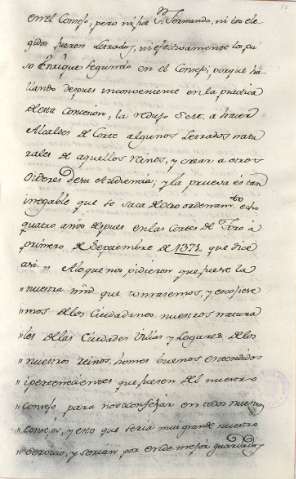 en el Consejo, pero ni fue Sn. Fernando, ni los ele-
gidos fueron Letrados, ni efectivamente los pu-
so Enrique Segundo en el Consejo; porque ha-
llando despues inconveniente en la practica
de esta Concesion, la reduxo Solo a hacer
Alcaldes de Corte algunos Letrados natu-
rales de aquellos reinos, y crear a otros
Oidores de su Audiencia; y la prueba es tan
innegable que se saca de otro ordenamto. echo
quatro años despues en las Cortes de Toro à
primero de Septiembre de 1373, que dice
asi = A lo que nos pidieron que fuese la
" nuestra md. que tomasemos, y escogiese-
mos de los Ciudadanos nuestros natura-
les de las Ciudades Villas y Lugares de los
" nuestros reinos, homes buenos entendidos
" i pertenecientes que fuesen del nuestro
" Consejo, para nos aconsejar en todos nuestros
" Consejos, y esto que seria mui grande nuestro
" servicio, y serian por ende mejor guardados